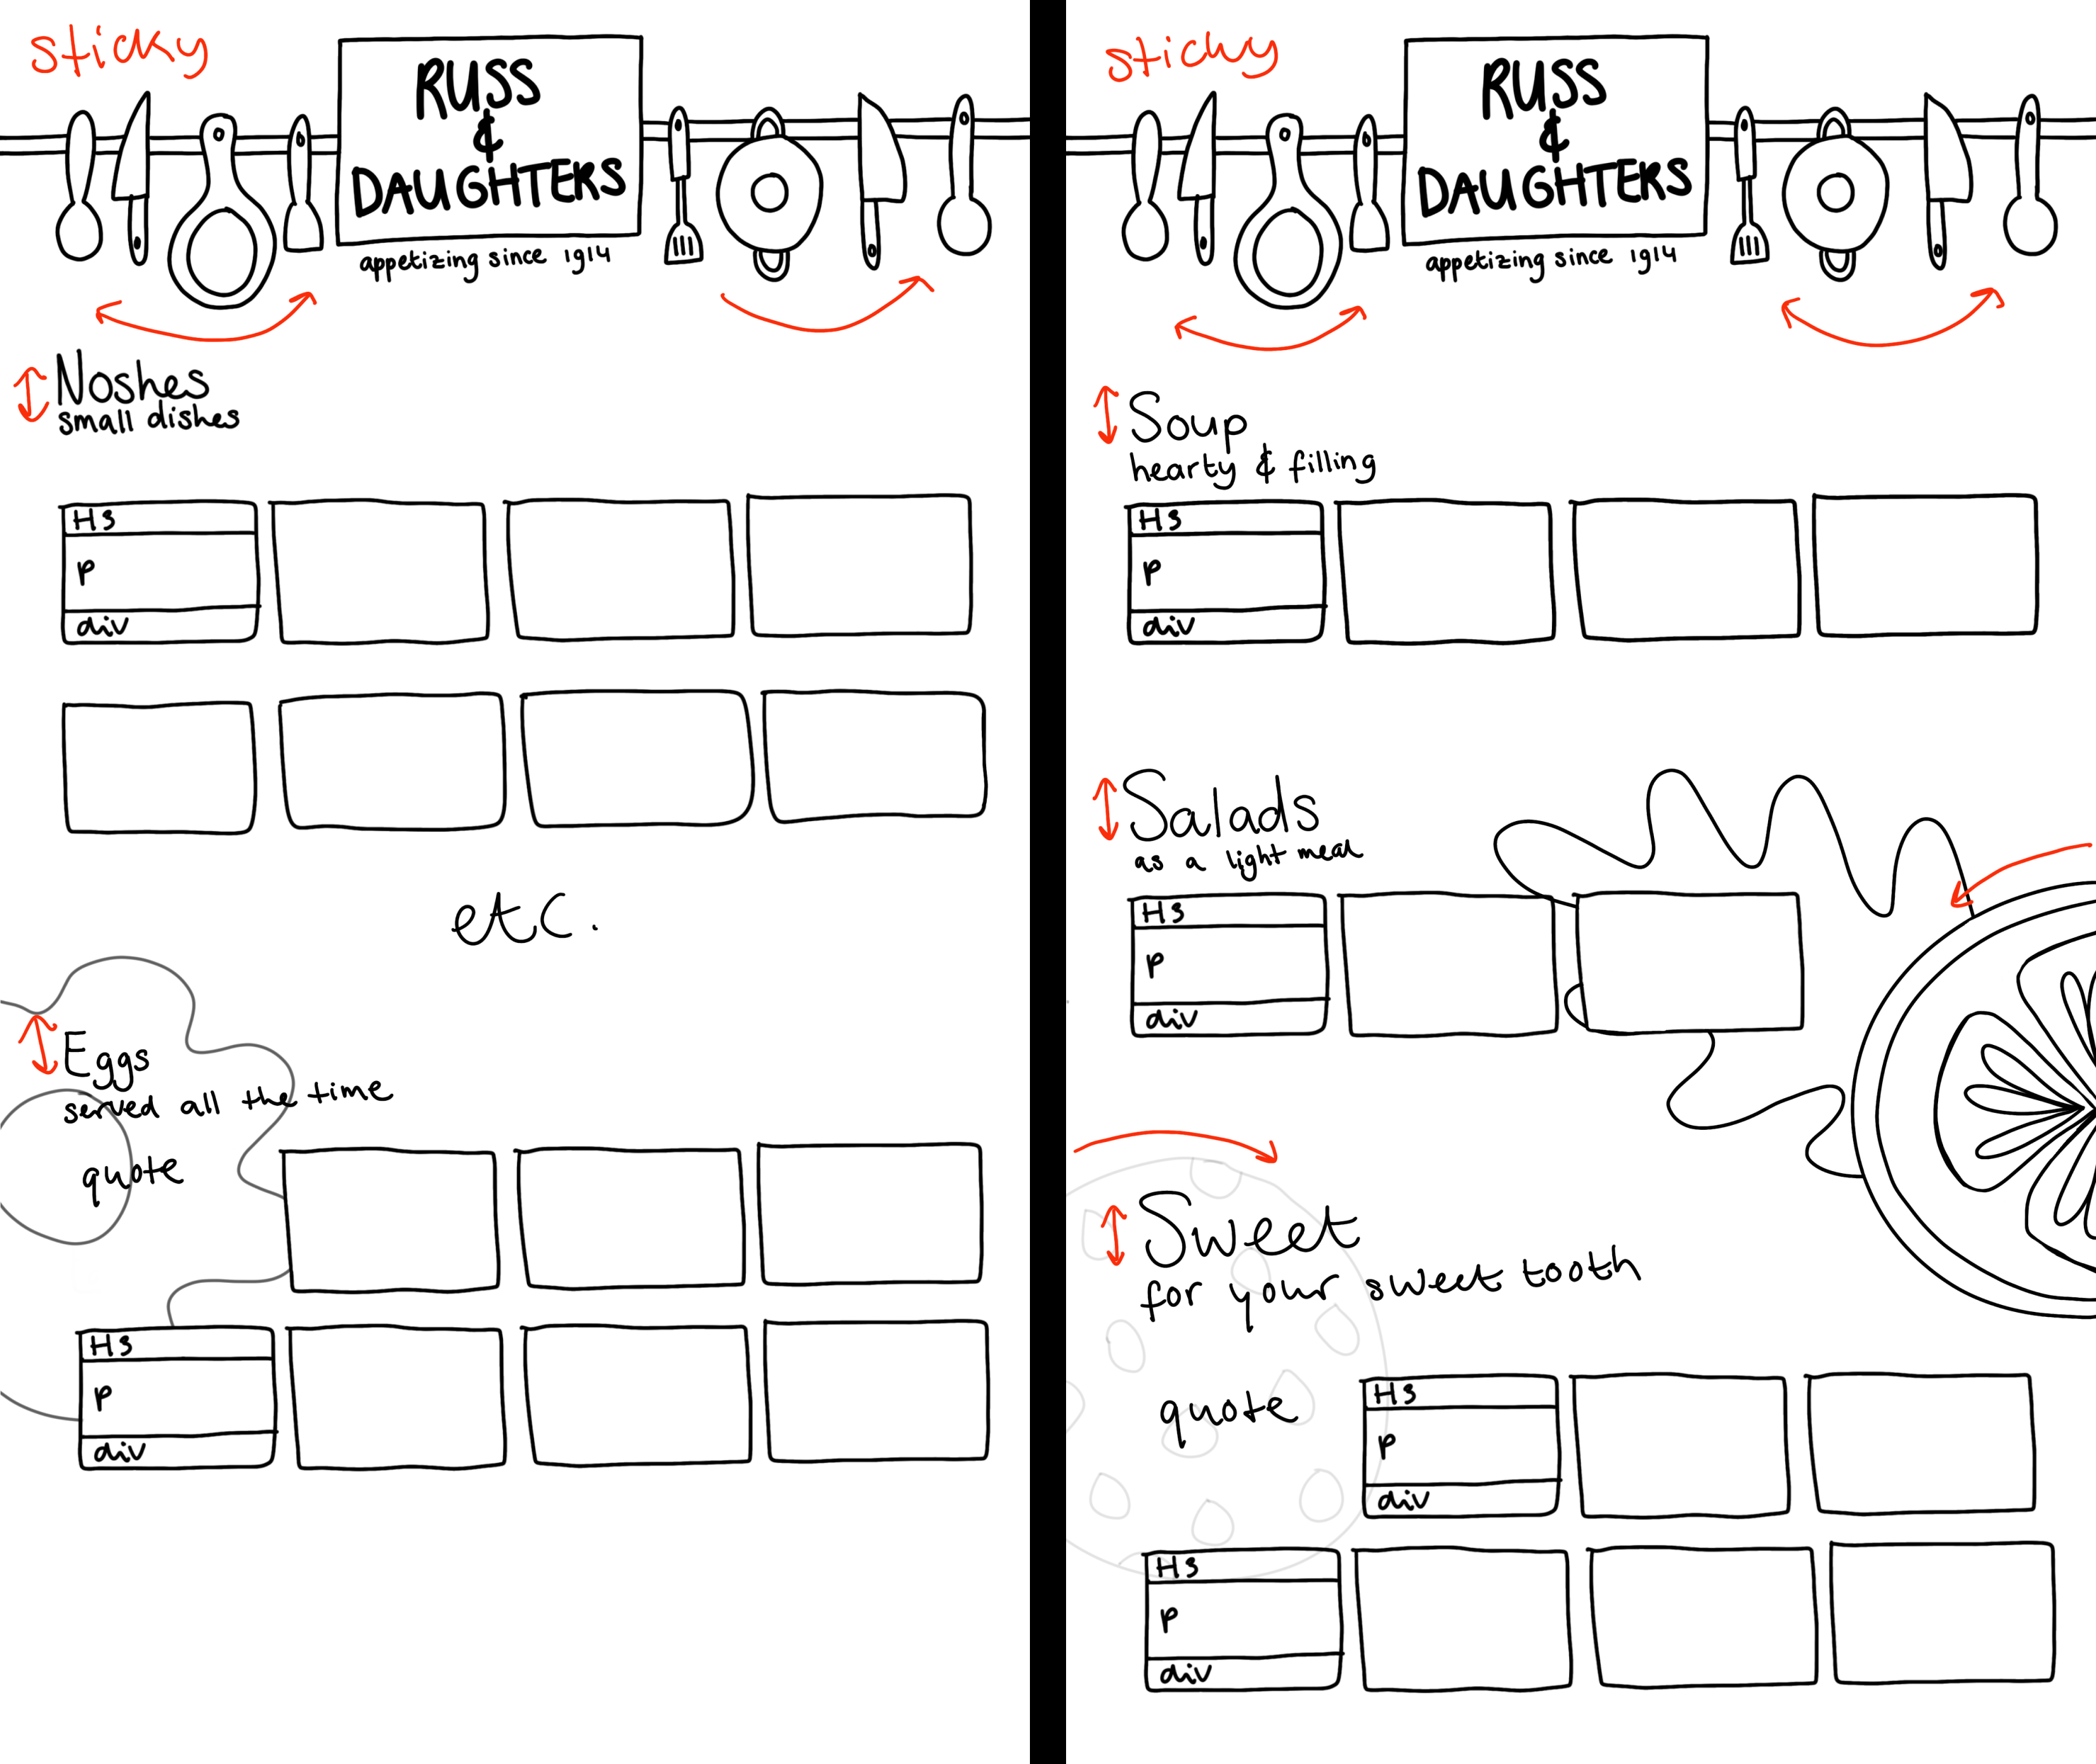 sticky
RUSS
&
DAUGHTERS
appetizing since 1914
Noshes
small dishes
H3
p
div
etc.
Eggs
served all the time
quote
H3
p
div
sticky
RUSS
&
DAUGHTERS
appetizing since 1914
Soup
hearty & filling
H3
p
div
Salads
as a light meal
H3
p
div
Sweet
for your sweet tooth
quote
H3
p
div
H3
p
div